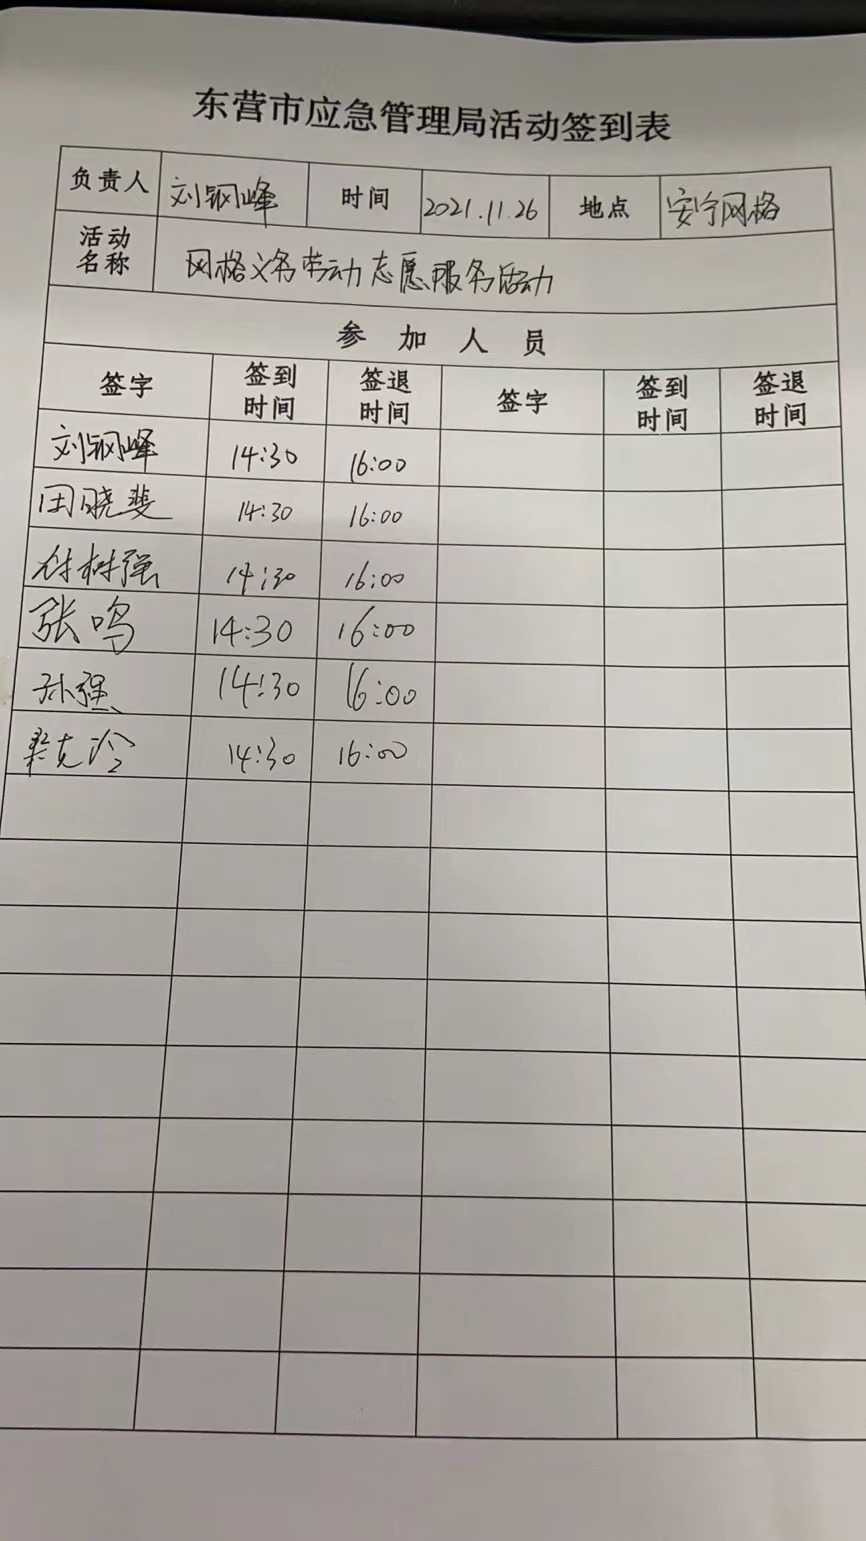 东营市应急管理局活动签到表
负责人 刘钢峰 时间 2021.11.26 地点 安宁网格
活动名称 网格义务劳动志愿服务活动
参加人员
签字 签到时间 签退时间 签字 签到时间 签退时间
刘钢峰 14:30 16:00
田晓斐 14:30 16:00
树强 14:30 16:00
张鸣 14:30 16:00
孙强 14:30 16:00
克冷 14:30 16:00